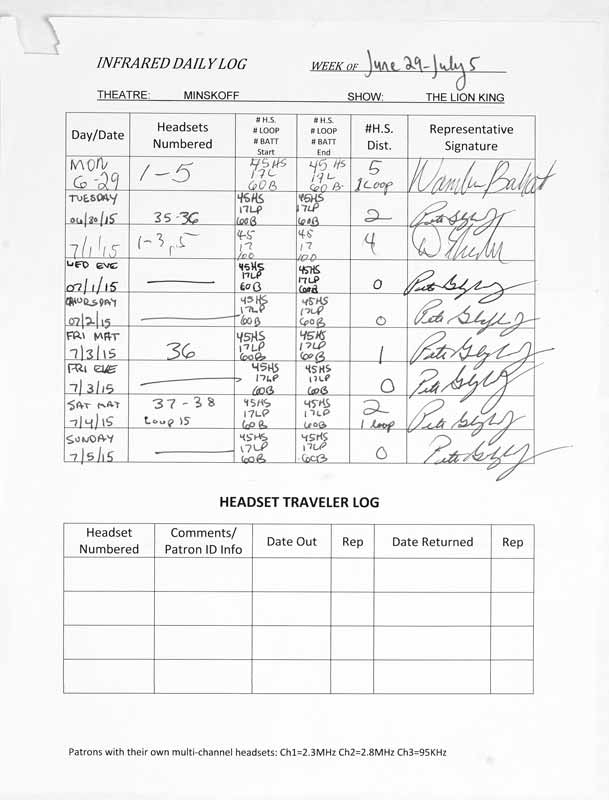 INFRARED DAILY LOG WEEK OF June 29-July 5
THEATRE: MINSKOFF SHOW: THE LION KING
Day/Date Headsets Numbered # H.S. # LOOP # BATT Start # H.S. # LOOP # BATT End #H.S. Dist. Representative Signature
MON 6-29 1-5 45HS 17L 60B 45 HS 17L 60B. 5 1 Loop
TUESDAY 06/30/15 35-36 45HS 17LP 60B 45HS 17LP 60B 2
7/1/15 1-3, 5 45 17 100 45 17 100 4
WED EVE 07/1/15 45HS 17LP 60B 45HS 17LP 60B 0
THURSDAY 07/2/15 45HS 17LP 60B 45HS 17LP 60B 0
FRI MAT 7/3/15 36 45HS 17LP 60B 45HS 17LP 60B 1
FRI EVE 7/3/15 45HS 17LP 60B 45HS 17LP 60B 0
SAT MAT 7/4/15 37-38 Loop 15 45HS 17LP 60B 45HS 17LP 60B 2 1 loop
SUNDAY 7/5/15 45HS 17LP 60B 45HS 17LP 60B 0
HEADSET TRAVELER LOG
Headset Numbered Comments/ Patron ID Info Date Out Rep Date Returned Rep
Patrons with their own multi-channel headsets: Ch1=2.3MHz Ch2=2.8MHz Ch3=95KHz